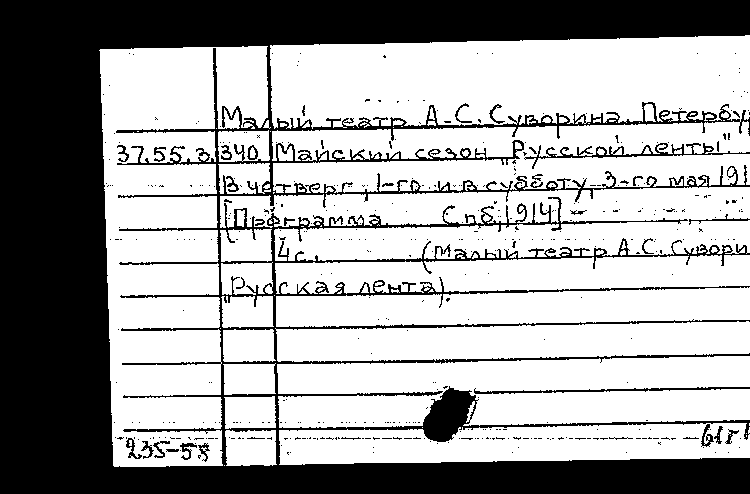 Малый театр А.С. Суворина. Петербу
37.55.3.340 Майский сезон „Русской ленты"
В четверг, 1-го и в субботу, 3-го мая 191
[Программа Спб, 1914] -
4с. (Малый театр А.С. Сувори
„Русская лента).
235-58